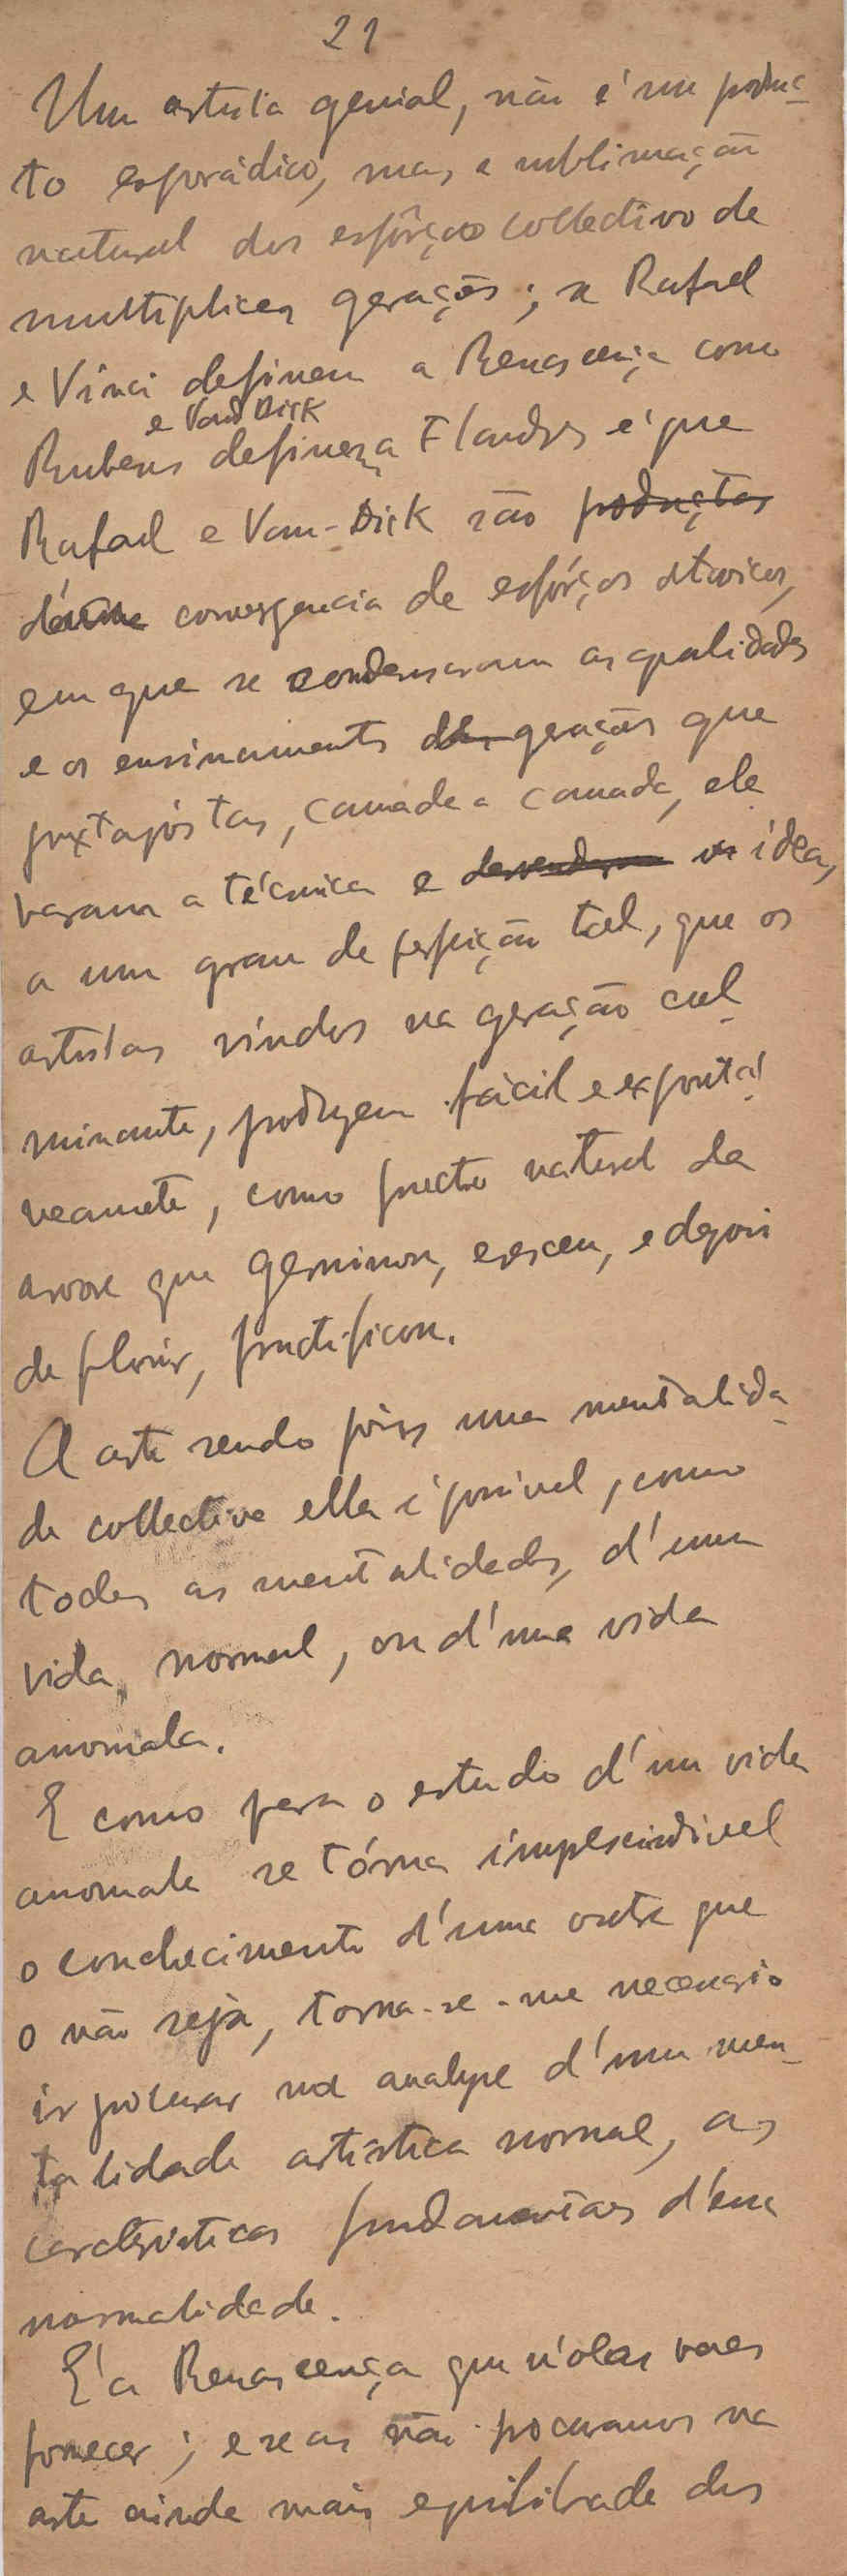 21
Um artista genial, não é um produc-
to esporádico, mas a sublimação
natural dos esfôrços collectivo de
multiplices gerações; se Rafael
e Vinci definem a Renascença como
e Vand Dick
Rubens definem a Flandres é que
Rafael e Vam-Dick são productos
d'uma convergencia de esfórços atavicos,
em que se condensaram as qualidades
e os ensinamentos de gerações que
juxtapóstas, camada a camada, ele
varam a técnica e as ideas,
a um grau de perfeição tal, que os
artistas vindos na geração cul-
minante, produzem fácil e expontá-
neamete, como fructo natural da
arvore que germinou, cresceu, e depois
de florir, fructificou.
A arte sendo pois uma mentalida-
de collectiva ella é possivel, como
todas as mentalidades, d'uma
vida normal, ou d'uma vida
anomala.
E como para o estudo d'um vida
anomala se tórna impescindivel
o conhecimento d'uma outra que
o não seja, torna-se-me necessario
ir procurar na analyse d'uma men-
talidade artistica normal, as
caracteristicas fundamentaes d'essa
normalidade.
E' a Renascença que n'olas vaes
fornecer; e se as não procuramos na
arte ainda mais equilibrada dos